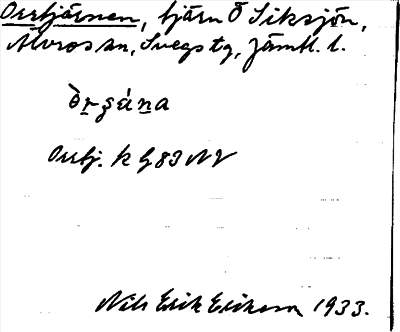 Orrtjärnen, tjärn Ö Siksjön,
Älvros sn, Svegs tg, Jämtl. l.
Ortj. k G 83 NV
Nils Erik Erikson 1933.